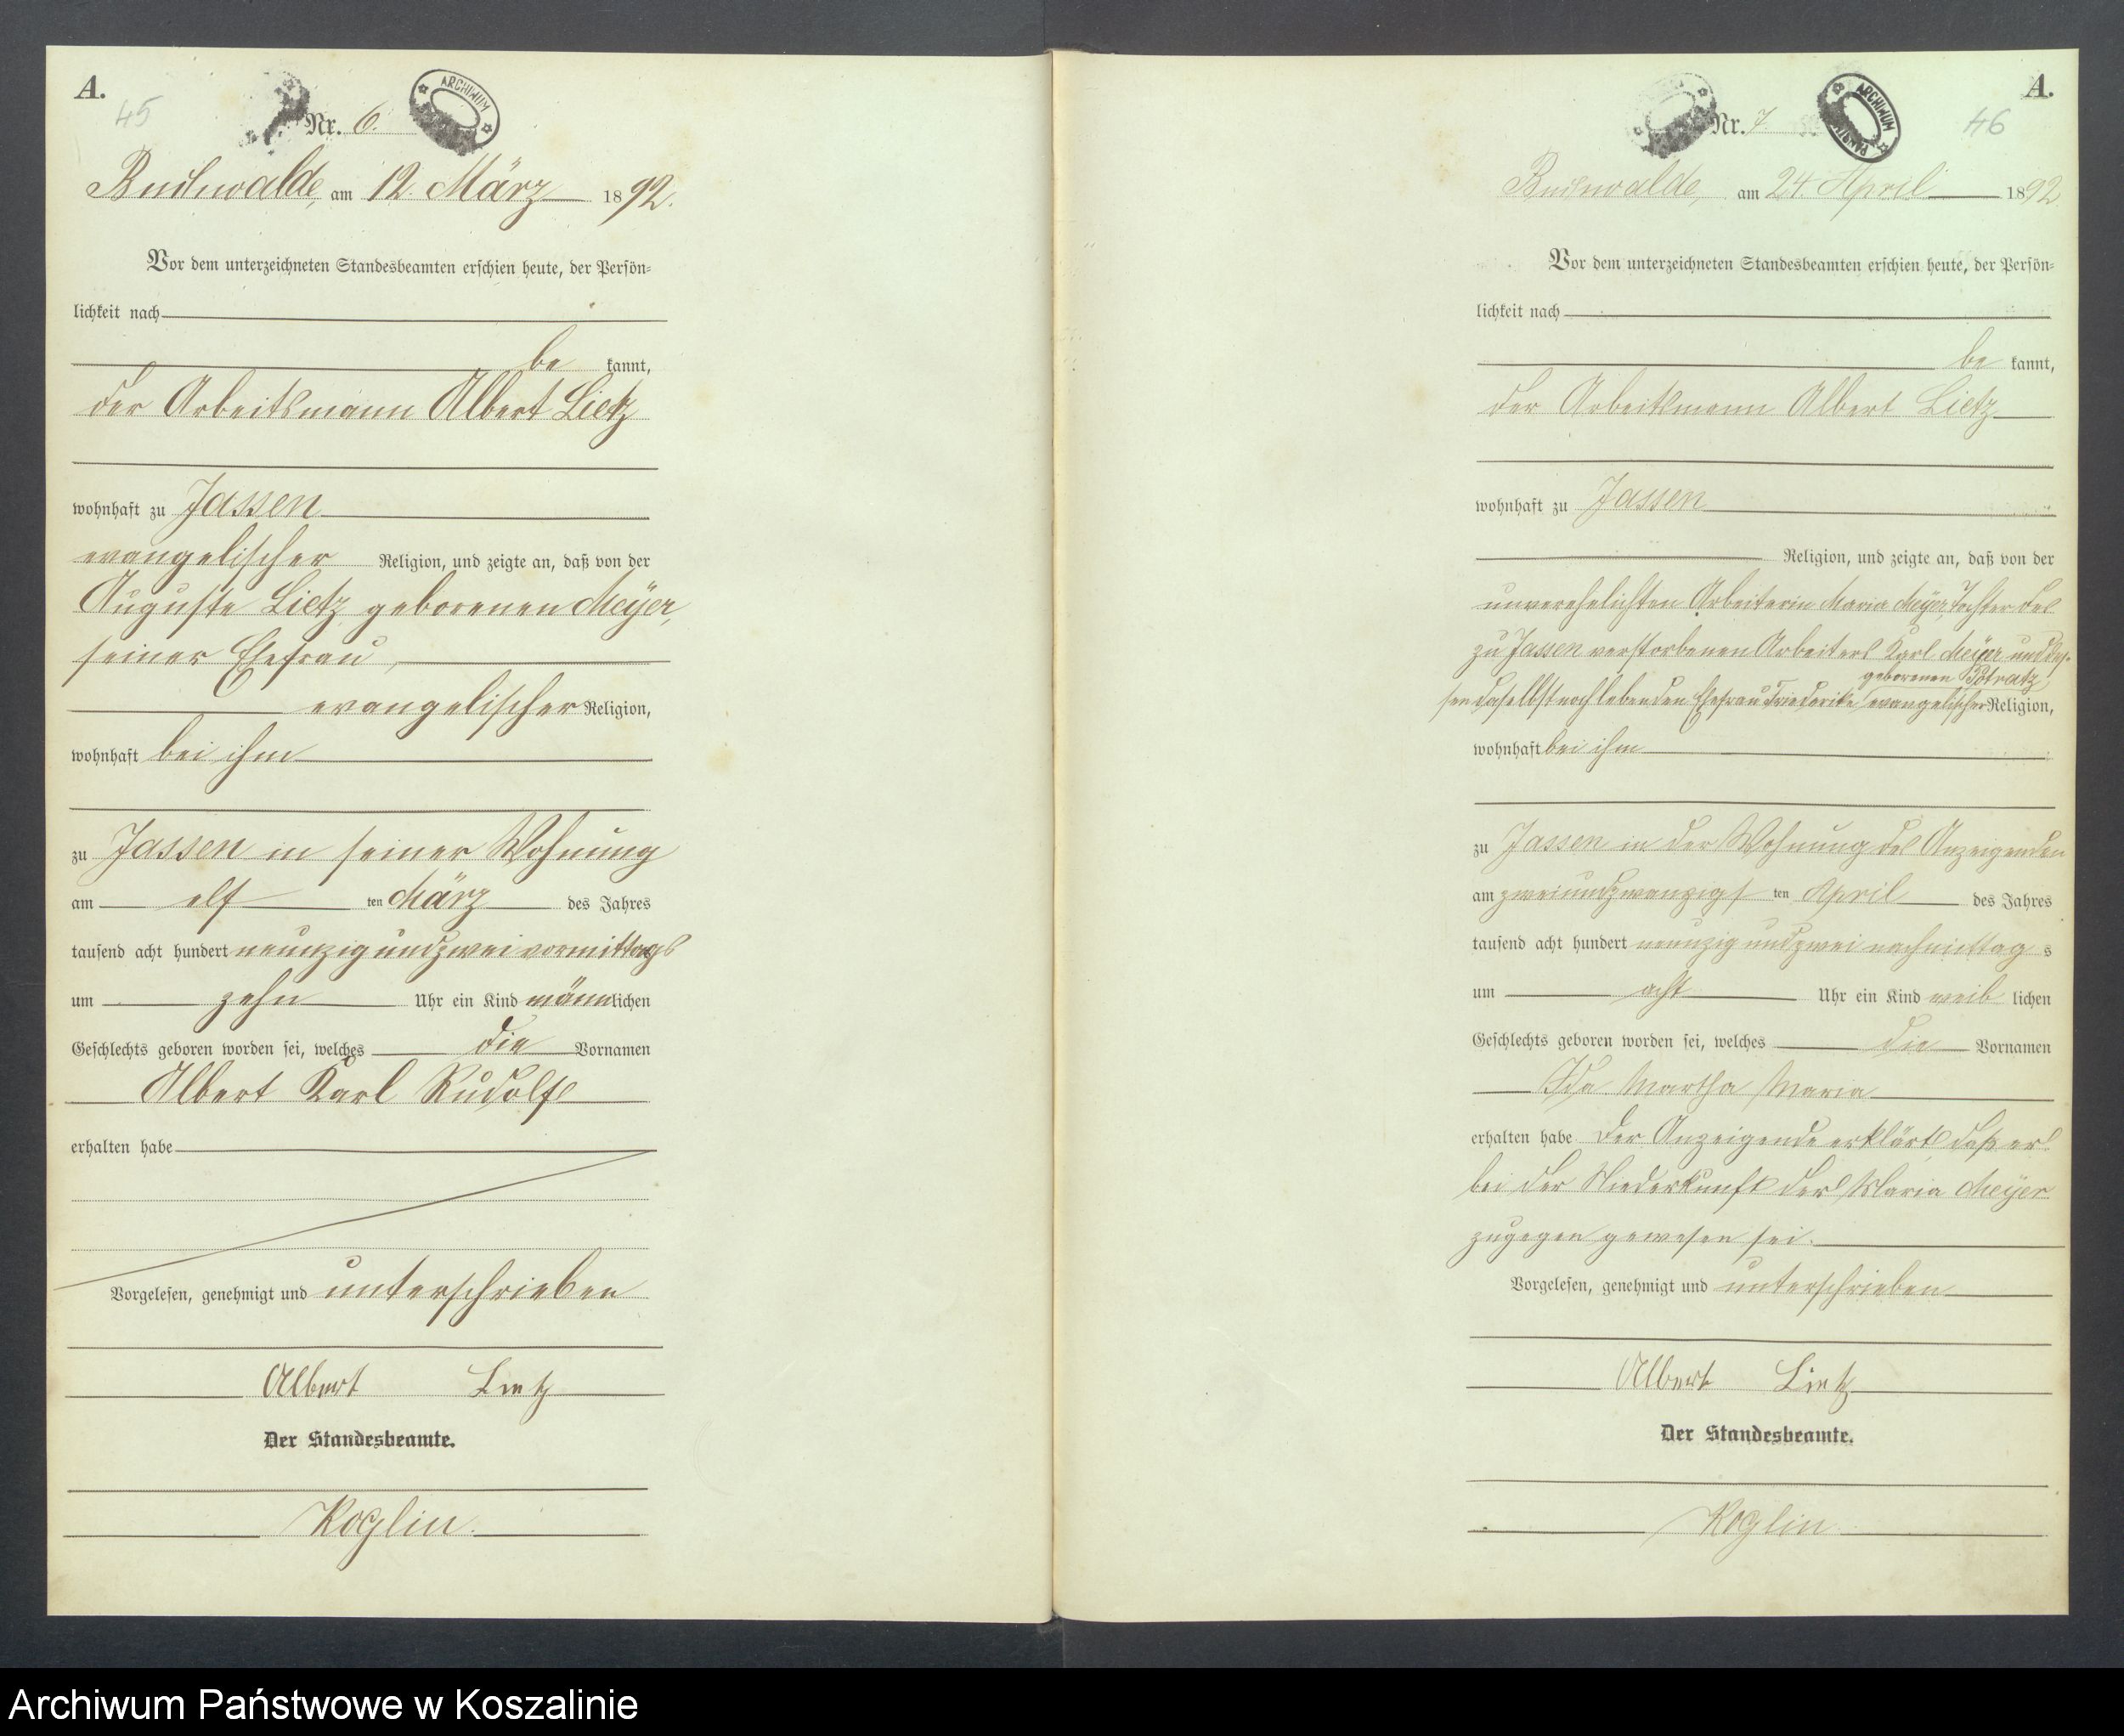 A.
45
Nr. 6.
ARCHIWUM
Buchwalde, am 12. März 1892.
Vor dem unterzeichneten Standesbeamten erschien heute, der Persön-
lichkeit nach
be kannt,
der Arbeitsmann Albert Lietz
wohnhaft zu Jassen
evangelischer Religion, und zeigte an, daß von der
Auguste Lietz geborenen Meÿer,
seiner Ehefrau,
evangelischer Religion,
wohnhaft bei ihm
zu Jassen in seiner Wohnung
am elf ten März des Jahres
tausend acht hundert neunzig und zwei vormittags
um zehn Uhr ein Kind männlichen
Geschlechts geboren worden sei, welches die Vornamen
Albert Karl Rudolf
erhalten habe
Vorgelesen, genehmigt und unterschrieben
Albert Lietz
Der Standesbeamte.
Koglin.
A.
46
Nr. 7
ARCHIWUM
Buchwalde, am 24. April 1892
Vor dem unterzeichneten Standesbeamten erschien heute, der Persön-
lichkeit nach
be kannt,
der Arbeitsmann Albert Lietz
wohnhaft zu Jassen
Religion, und zeigte an, daß von der
unverehelichten Arbeiterin Maria Meÿer, Tochter des
zu Jassen verstorbenen Arbeiters Karl Meÿer und des-
geborenen Potratz
sen daselbst noch lebenden Ehefrau Friederike evangelischer Religion,
wohnhaft bei ihm
zu Jassen in der Wohnung des Anzeigenden
am zweiundzwanzigs ten April des Jahres
tausend acht hundert neunzig und zwei nachmittag s
um acht Uhr ein Kind weib lichen
Geschlechts geboren worden sei, welches die Vornamen
Ida Martha Maria
erhalten habe Der Anzeigende erklärt daß er
bei der Niederkunft der Maria Meÿer
zugegen gewesen sei.
Vorgelesen, genehmigt und unterschrieben
Albert Lietz
Der Standesbeamte.
Koglin
Archiwum Państwowe w Koszalinie